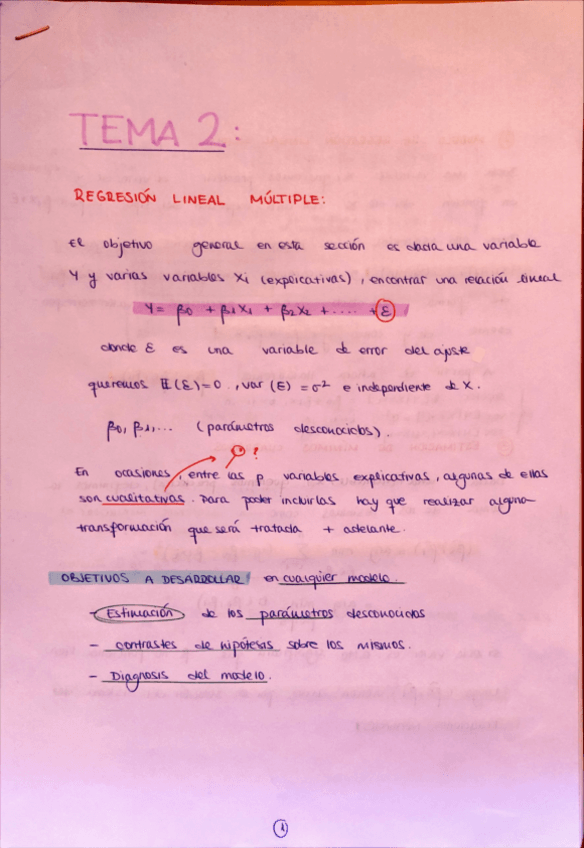 TEMA 2:
REGRESIÓN LINEAL MÚLTIPLE:
El objetivo general en esta sección es dada una variable
Y y varias variables Xi (explicativas), encontrar una relación lineal
Y = β0 + β1X1 + β2X2 + ..... + ε
donde ε es una variable de error del ajuste
queremos E(ε)=0., var(ε) = σ² e independiente de X.
β0, β1,... (parámetros desconocidos).
?
En ocasiones, entre las p variables explicativas, algunas de ellas
son cualitativas. Para poder incluirlas hay que realizar alguna
transformación que será tratada + adelante.
OBJETIVOS A DESARROLLAR en cualquier modelo.
- Estimación de los parámetros desconocidos
- contrastes de hipótesis sobre los mismos.
- Diagnosis del modelo.
1